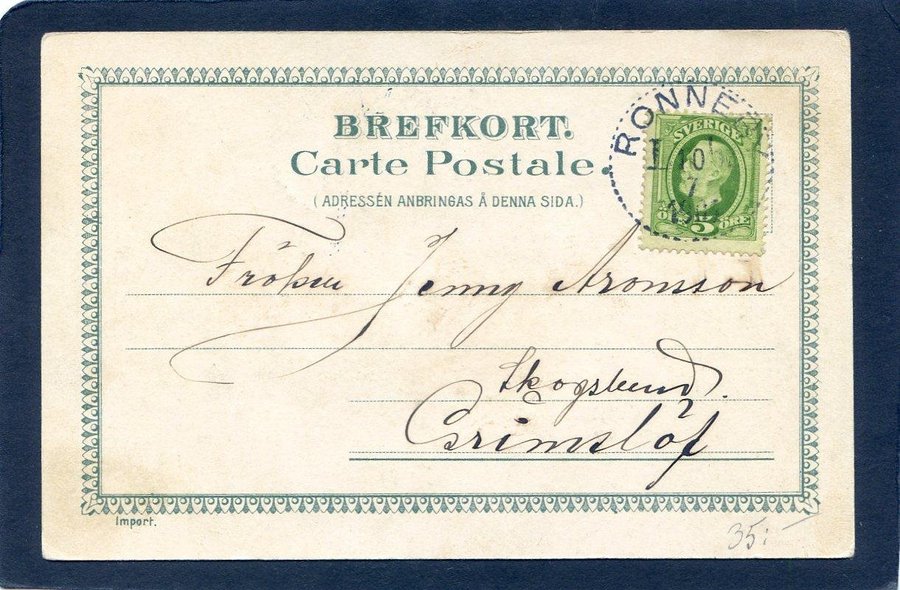 BREFKORT.
Carte Postale.
(ADRESSÉN ANBRINGAS Å DENNA SIDA.)
RONNEBY
SVERIGE
10
7
5 ÖRE
Fröken Jenny Aronsson
Skogslund.
Grimslöf
Import.
35:-